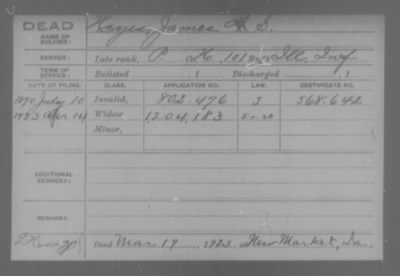 DEAD
NAME OF SOLDIER: Hayes, James H. S.
SERVICE: Late rank, P. H, 101 Reg't Ill. Inf
TERM OF SERVICE: Enlisted , 1 Discharged , 1
DATE OF FILING. CLASS. APPLICATION NO. LAW. CERTIFICATE NO.
1890 July 10 Invalid, 802.476 J 568.642
1923 Apr 14 Widow 1204,183
Minor,
ADDITIONAL SERVICES:
REMARKS:
Died Mar. 19, 1923, at New Market, Ia.